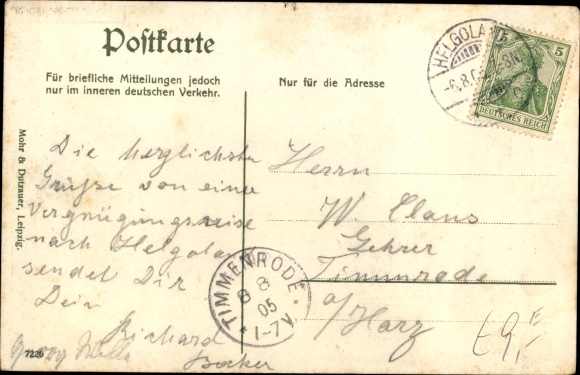 Postkarte
Für briefliche Mitteilungen jedoch
nur im inneren deutschen Verkehr.
Nur für die Adresse
HELGOLA
-6.8.0
5
5
DEUTSCHES REICH
Mohr & Dutzauer, Leipzig.
Die herzlichste
Grüße von einer
Vergnügungsreise
nach Helgola
sendet Dir
Dein
Richard
Becker
7226
Herrn
W. Claus
Lehrer
Timmrode
a/Harz
TIMMENRODE
8
8
05
1-7V